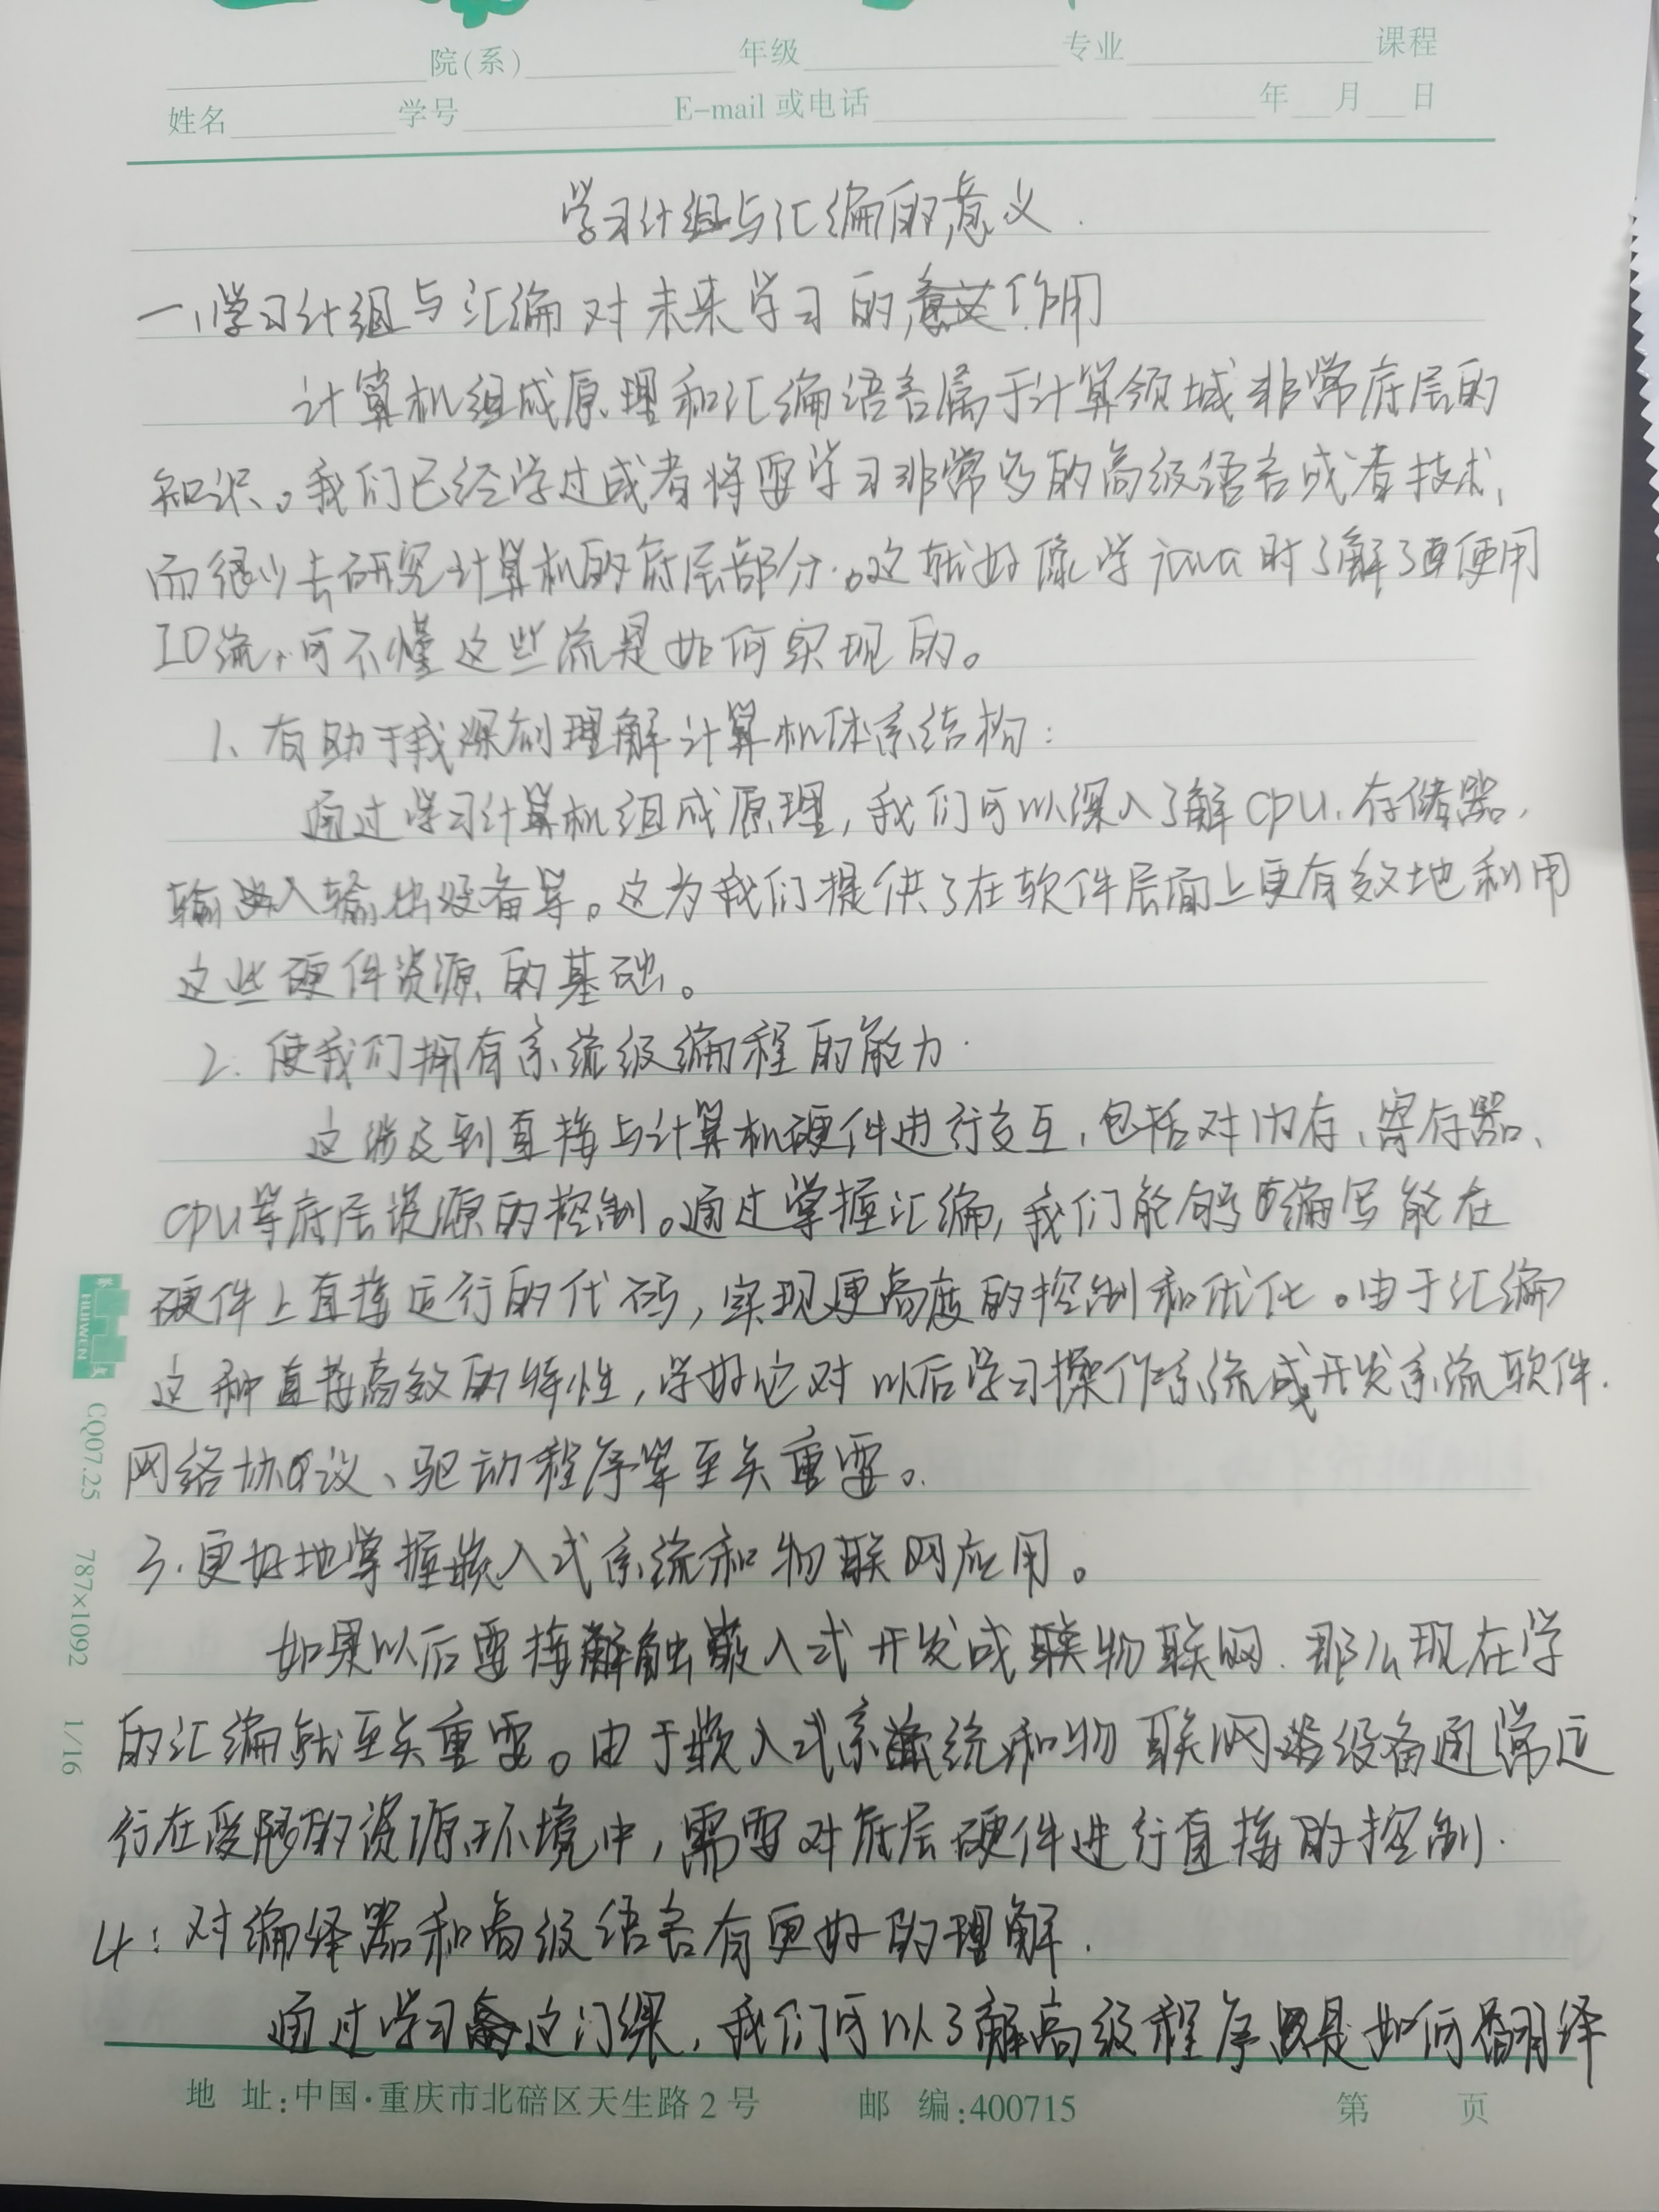 院(系) 年级 专业 课程
姓名 学号 E-mail 或电话 年 月 日
学习计组与汇编的意义.
一、学习计组与汇编对未来学习的作用
计算机组成原理和汇编语言属于计算领域非常底层的
知识。我们已经学过或者将要学习非常多的高级语言或者技术,
而很少去研究计算机的底层部分。这就好像学java时了解了要使用
IO流,可不懂这些流是如何实现的。
1、有助于我深刻理解计算机体系结构:
通过学习计算机组成原理,我们可以深入了解CPU、存储器,
输入输出设备等。这为我们提供了在软件层面上更有效地利用
这些硬件资源的基础。
2. 使我们拥有系统级编程的能力.
这涉及到直接与计算机硬件进行交互,包括对内存、寄存器、
CPU等底层资源的控制。通过掌握汇编,我们能够编写能在
硬件上直接运行的代码,实现更高度的控制和优化。由于汇编
这种直接高效的特性,学好它对以后学习操作系统或开发系统软件.
网络协议、驱动程序等至关重要。
3.更好地掌握嵌入式系统和物联网应用。
如果以后要接触嵌入式开发或物联网.那么现在学
的汇编就至关重要。由于嵌入式系统和物联网设备通常运
行在受限的资源环境中,需要对底层硬件进行直接的控制.
4:对编译器和高级语言有更好的理解.
通过学习这门课,我们可以了解高级程序是如何翻译
地 址:中国·重庆市北碚区天生路2号 邮 编:400715 第 页
HUIWEN CQ07.25 787×1092 1/16